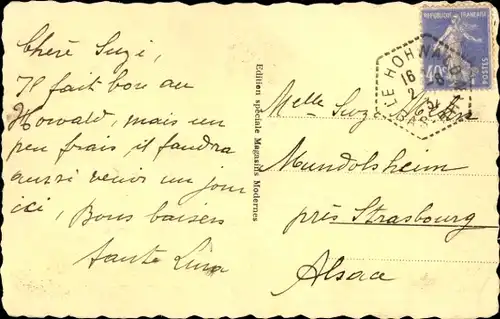 Chère Suzi,
Il fait bon au
Howald, mais un
peu frais il faudra
aussi venir un jour
ici, Bons baisers
tante Lina
Edition spéciale Magasins Modernes
REPUBLIQUE FRANÇAISE
40c
POSTES
LE HOHWALD
16
2 8
Melle Suze
Mundolsheim
près Strasbourg
Alsace